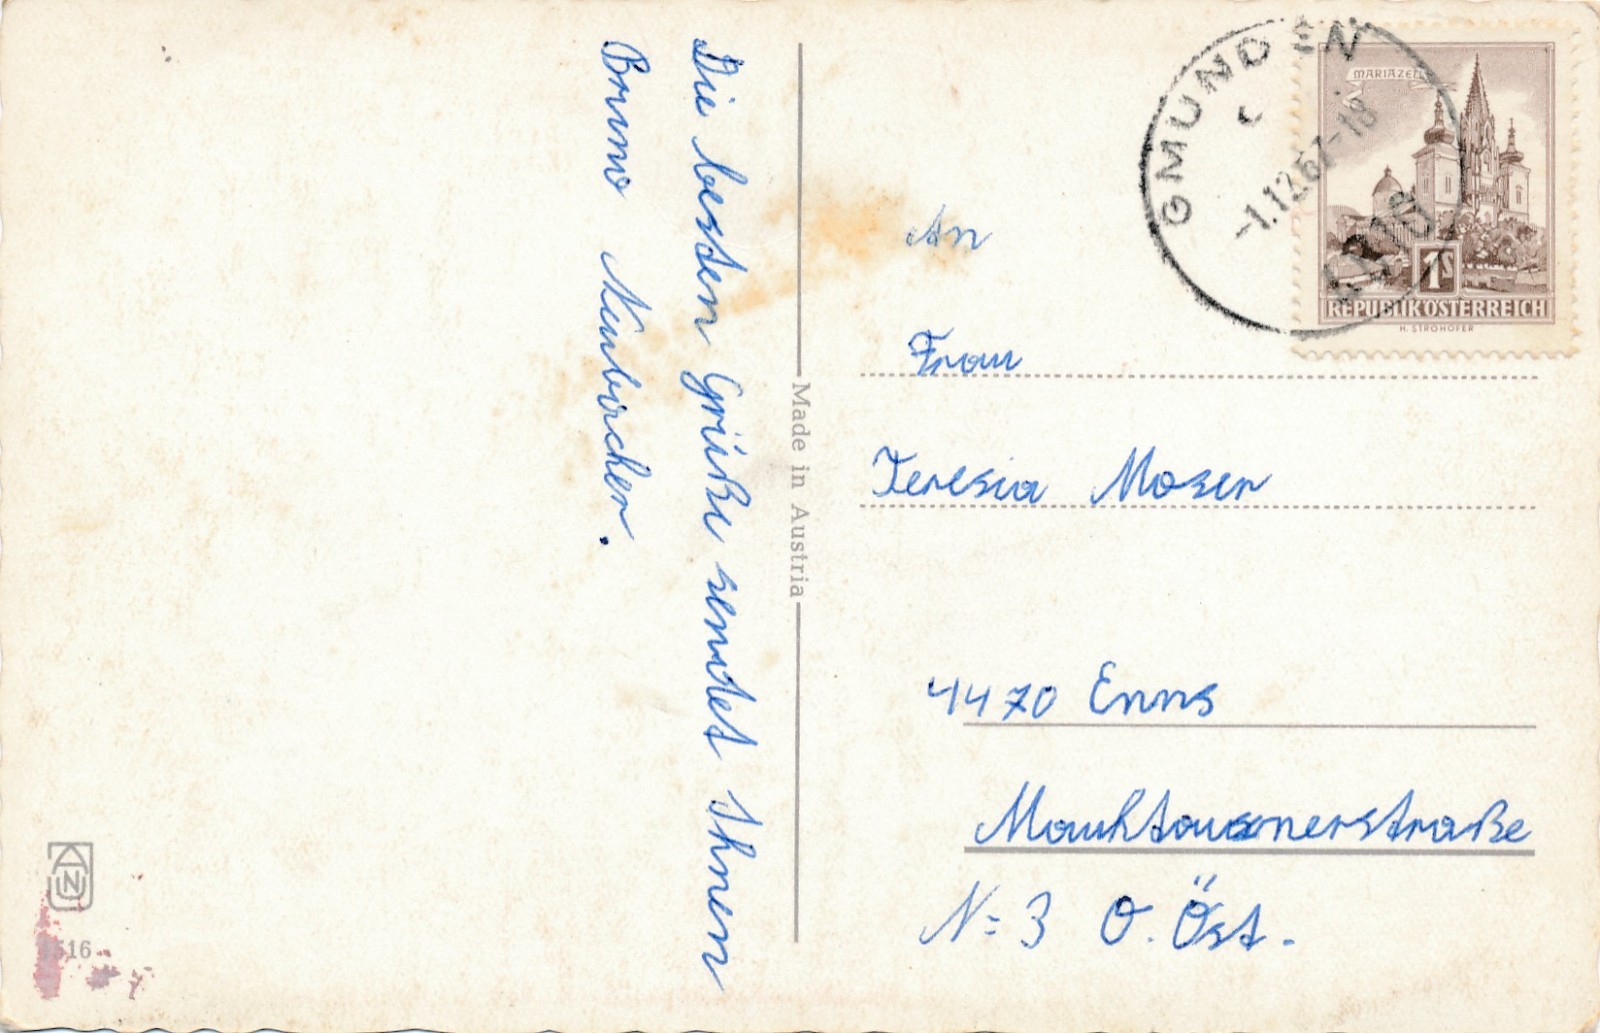 Die besten Grüße sendet Ihnen
Bruno Neubircher.
Made in Austria
516
GMUNDEN
-1.12.67-18
MARIAZELL
1S
REPUBLIK ÖSTERREICH
H. STROHOFER
An
Frau
Teresia Moser
4470 Enns
Mauhtausnerstraße
N: 3 O. Öst.